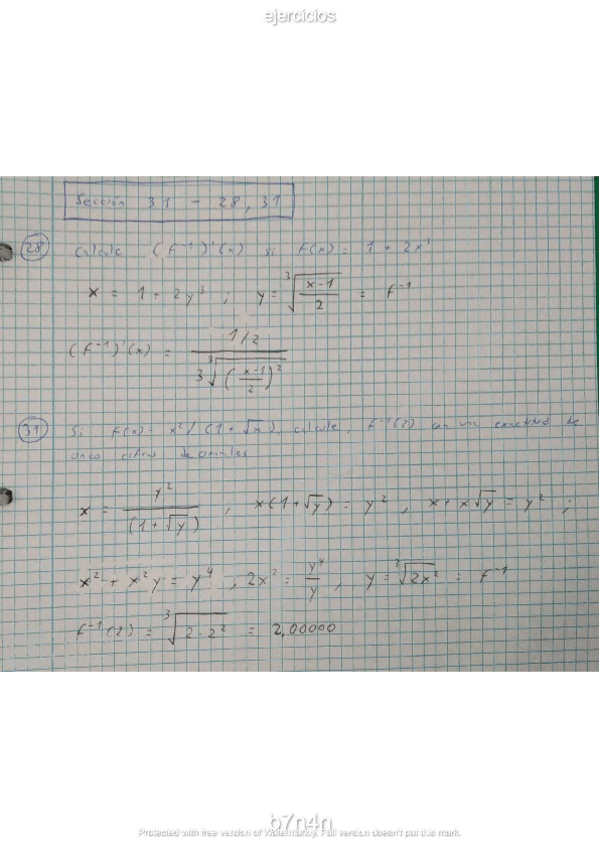 ejercicios
Sección 31 - 28, 31
28 Calcule (f⁻¹)'(x) si f(x) = 1 + 2x³
x = 1 + 2y³ ; y = ∛((x-1)/2) = f⁻¹
(f⁻¹)'(x) = (1/2) / (3∛((x-1)/2)²)
31 Si f(x) = x² / (1 + √x), calcule, f⁻¹(2) con una exactitud de
cinco cifras decimales
x = y² / (1 + √y) , x(1 + √y) = y² , x + x√y = y² ;
x² + x²y = y⁴ , 2x² = y⁴/y , y = ∛(2x²) = f⁻¹
f⁻¹(2) = ∛(2·2²) = 2,00000
b7n4n
Protected with free version of Watermarkly. Full version doesn't put this mark.